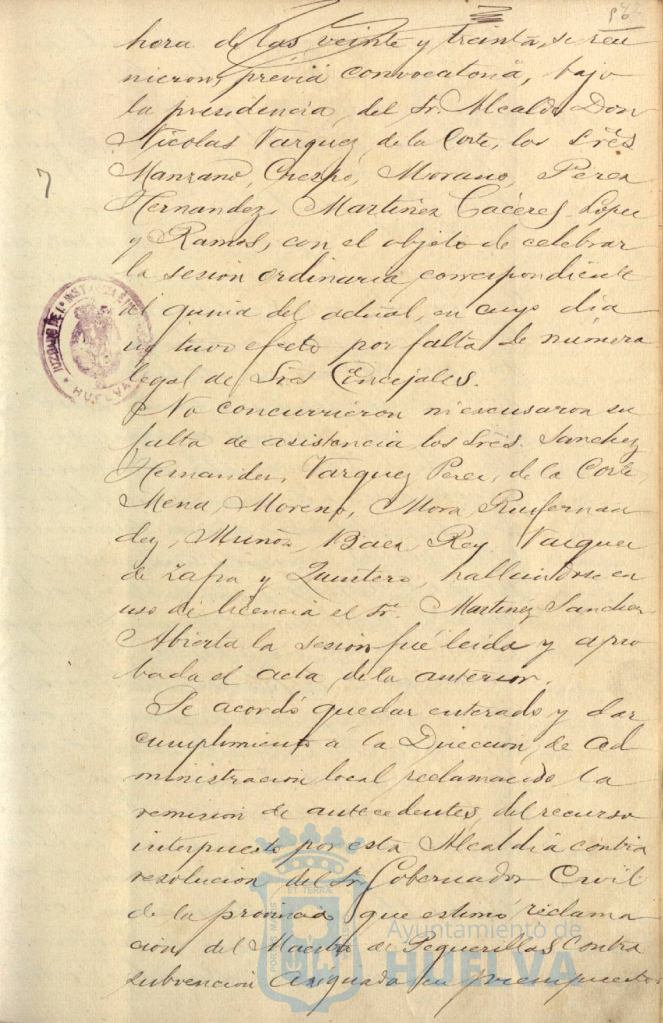 hora de las veinte y treinta, se reu
nieron, previa convocatoria, bajo
la presidencia, del Sr. Alcalde Don
Nicolas Vazquez de la Corte, los Sres
Manzano, Crespo, Morano, Perez
Hernandez, Martinez Cáceres, Lopez
y Ramos, con el objeto de celebrar
la sesion ordinaria correspondiente
al quince del actual, en cuyo dia
no tuvo efecto por falta de número
legal de Sres Concejales.
No concurrieron ni escusaron su
falta de asistencia los Sres. Sanchez
Hernandez, Vazquez Perez, de la Corte
Mena, Moreno, Mora, Ruifernan
dez, Muñoz, Baez Rey, Vazquez
de Zafra y Quintero, hallandose en
uso de licencia el Sr. Martinez Sanchez
Abierta la sesion fué leida y apro
bada el acta de la anterior.
Se acordó quedar enterado y dar
cumplimiento á la Direccion de Ad
ministracion local reclamando la
remision de antecedentes del recurso
interpuesto por esta Alcaldia contra
resolucion del Sr. Gobernador Civil
de la provincia que estimó reclama
cion del Maestro de Peguerillas contra
subvencion asignada en presupuesto
JUZGADO DE 1ª INSTANCIA
HUELVA
Ayuntamiento de
HUELVA